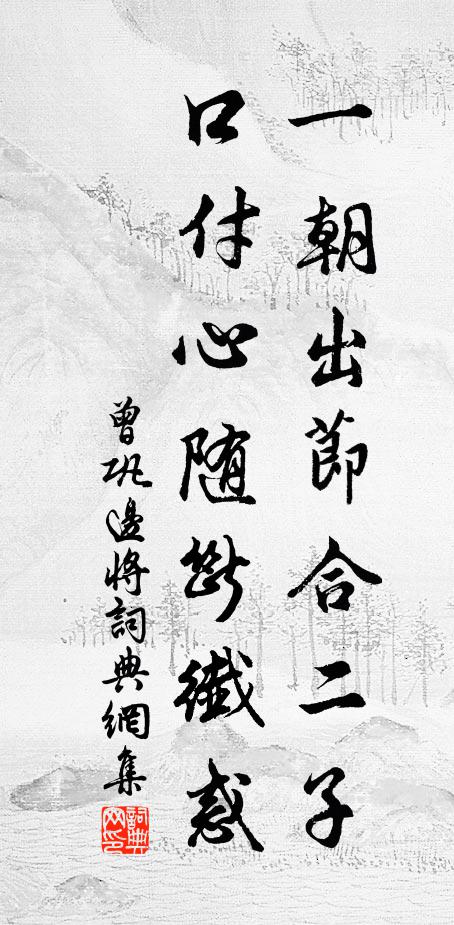 一朝出節合二子
口付心随斷纖惑
曾巩邊將詞典網集
詞典网印